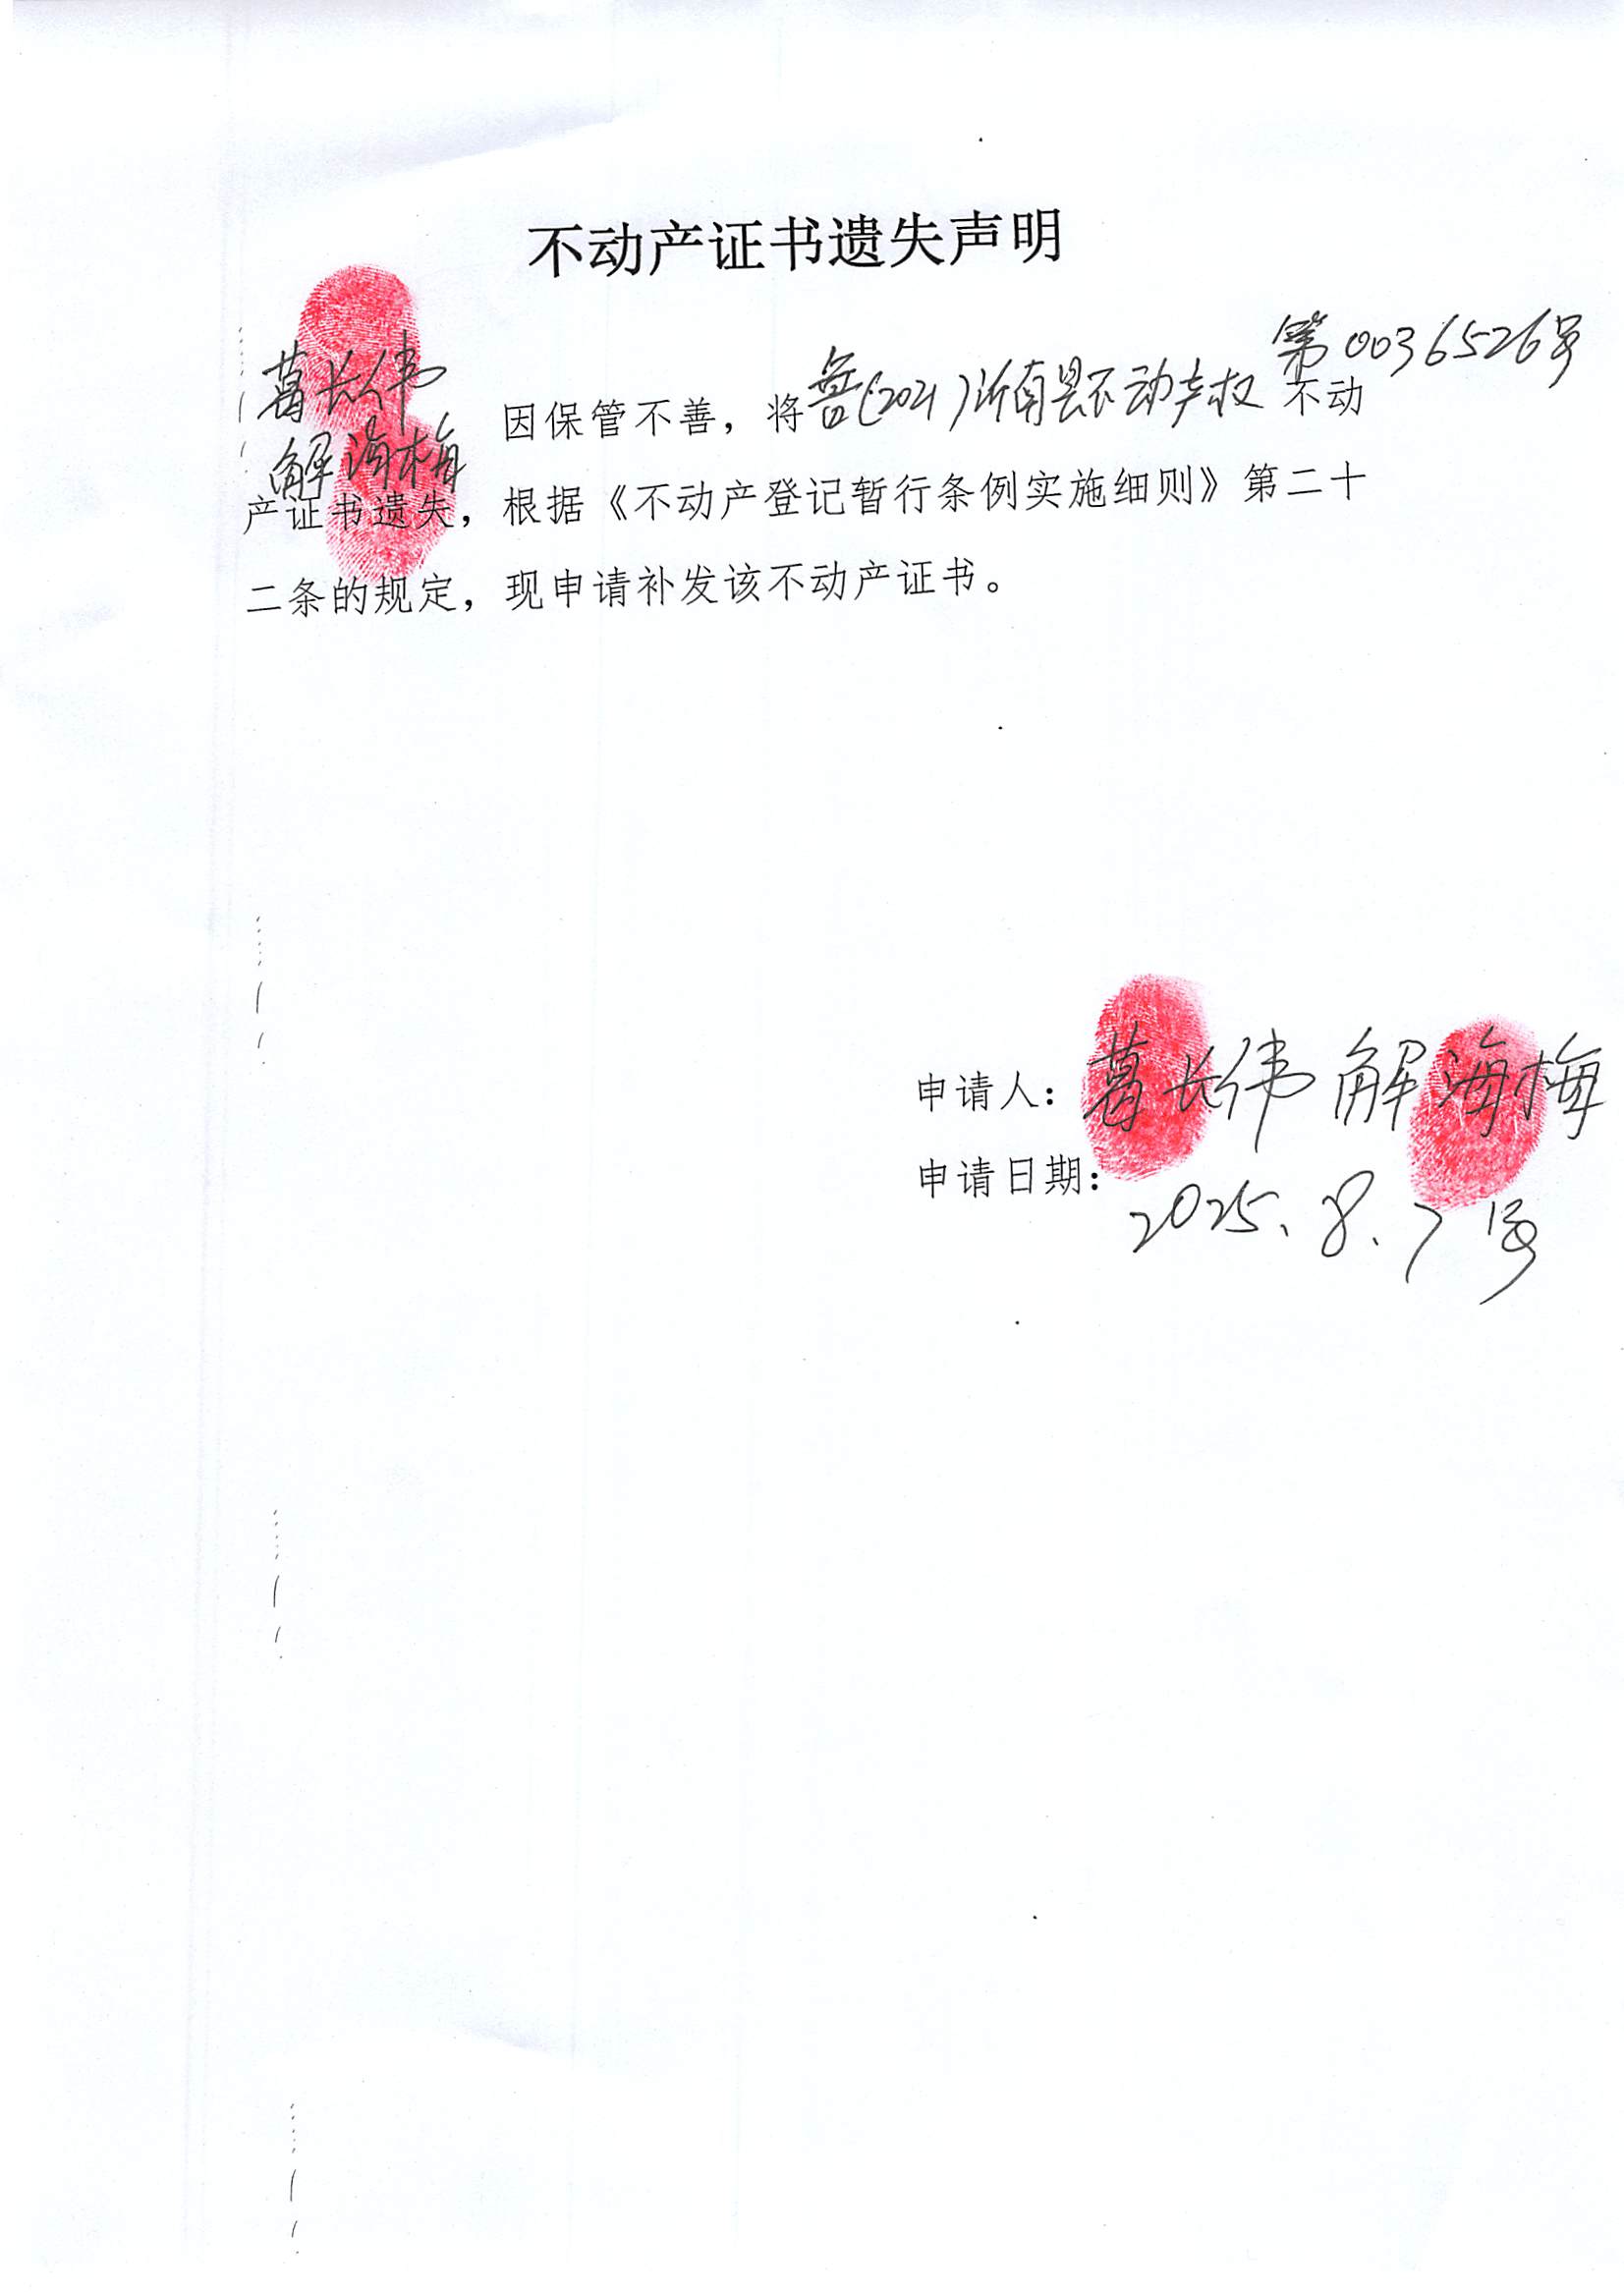 不动产证书遗失声明
葛长伟
解海梅
因保管不善，将鲁(2021)沂南县不动产权第0036526号不动
产证书遗失，根据《不动产登记暂行条例实施细则》第二十
二条的规定，现申请补发该不动产证书。
申请人：葛长伟 解海梅
申请日期：
2025、8、7号